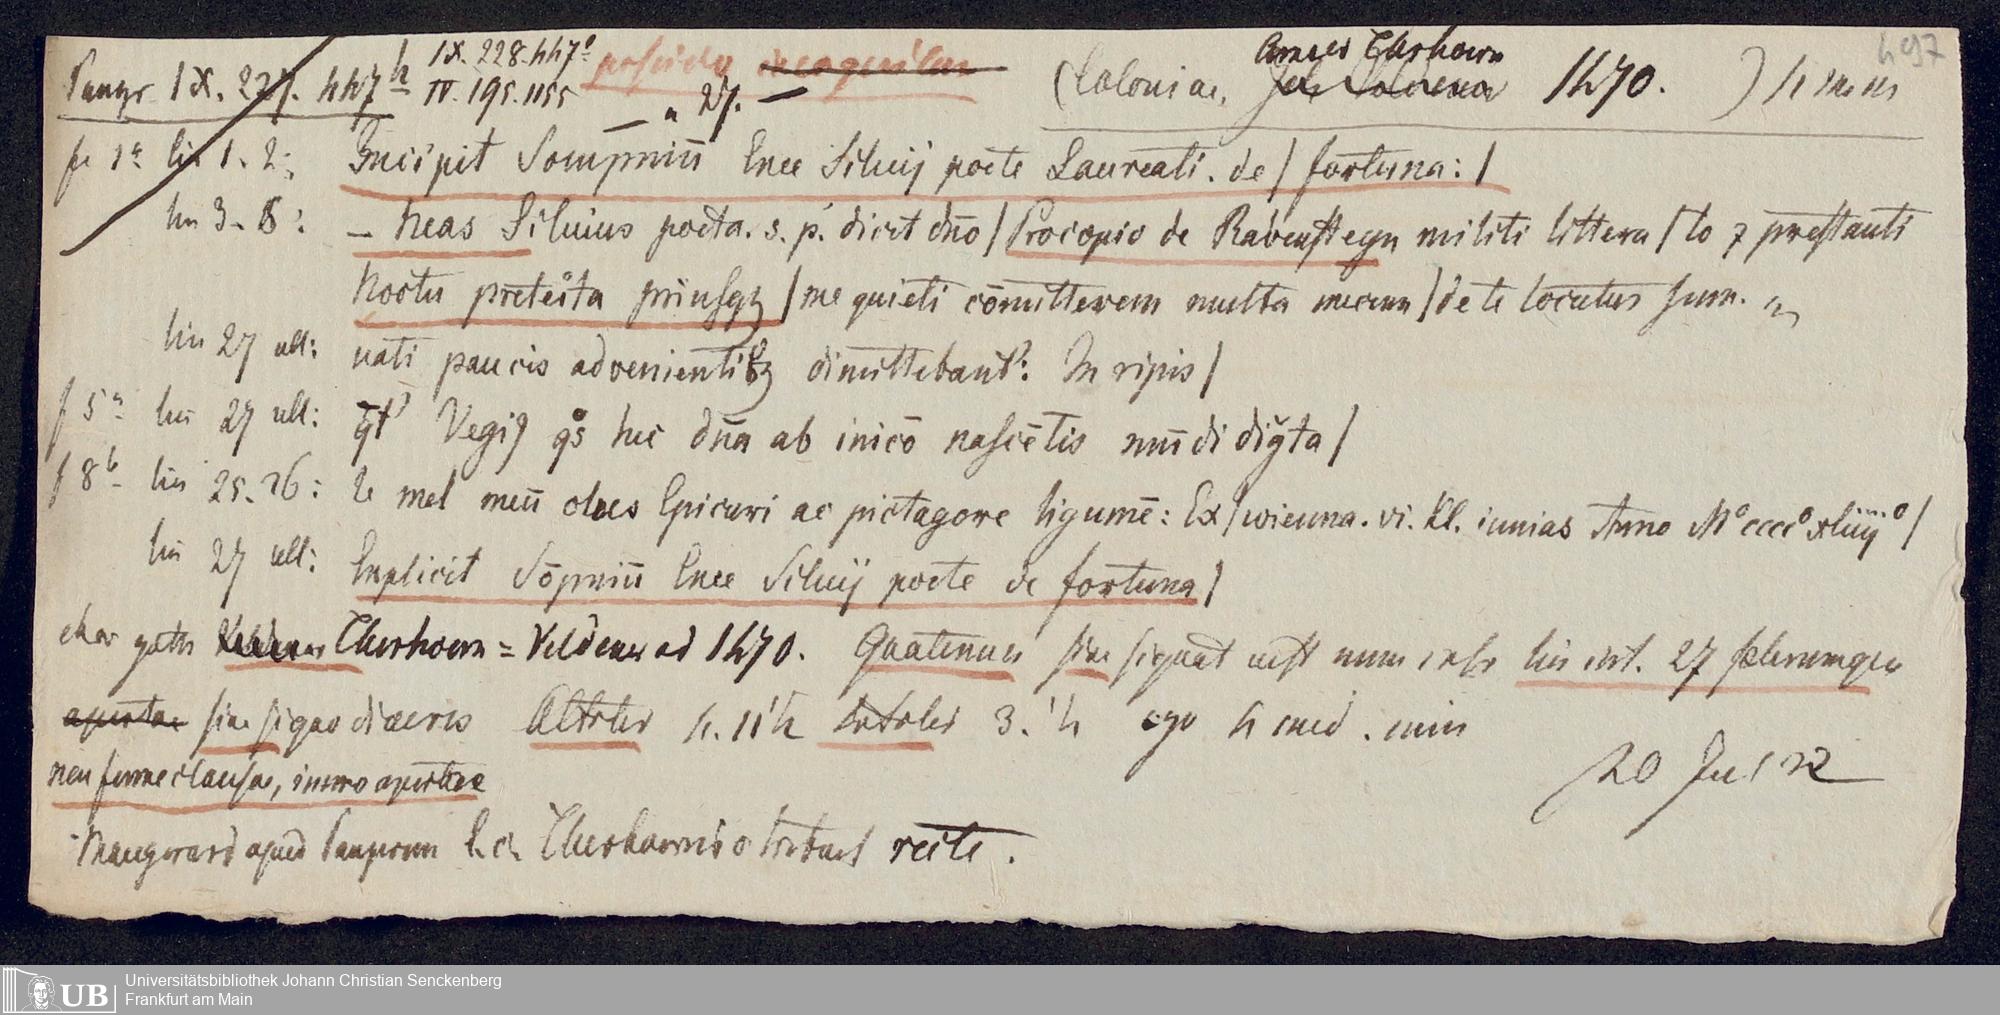 Panzr IX. 227. 447 b IX. 228. 447 c possideo (Coloniae, Arnold Therhoern 1470. ) 4 497
IV. 195. 1155 " 27. —
fo 1a lin 1. 2: Incipit Sompniū Enee Siluij poete Laureati. de / fortuna: /
lin 3-8: – Neas Siluius poeta. s. p. dicit dn̄o / Procopio de Rabensteyn militi littera / to ⁊ prestanti
Noctu preterita priusqꝫ / me quieti cōmitterem multa mecum / de te locutus sum. "
lin 27 ult: uati paucis advenientibꝫ dimittebant: In ripis /
f 5a lin 27 ult: Vegiꝰ hec dn̄a ab inicō nascētis mūdi
f 8b lin 25. 26: le mel meū oles Epicuri ac pictagore ligumē: Ex / wienna. vi. kl. iunias Anno Mº ccccº xliiijº /
lin 27 ult: Explicit Sōpniū Enee Siluij poete de fortuna /
char goth Therhoern = Veldener ad 1470. Quaternus sine signat cust num lin int. 27 plerumque
apertae sine signo diaeres Alt 4. 11 1/2 3. 1/2 ego 4 min
neu firme clausae, immo apertae 20 Jul 22
Maugerard apud Panzerum l. c. Therhoernio tribuit recte.
Universitätsbibliothek Johann Christian Senckenberg
UB Frankfurt am Main